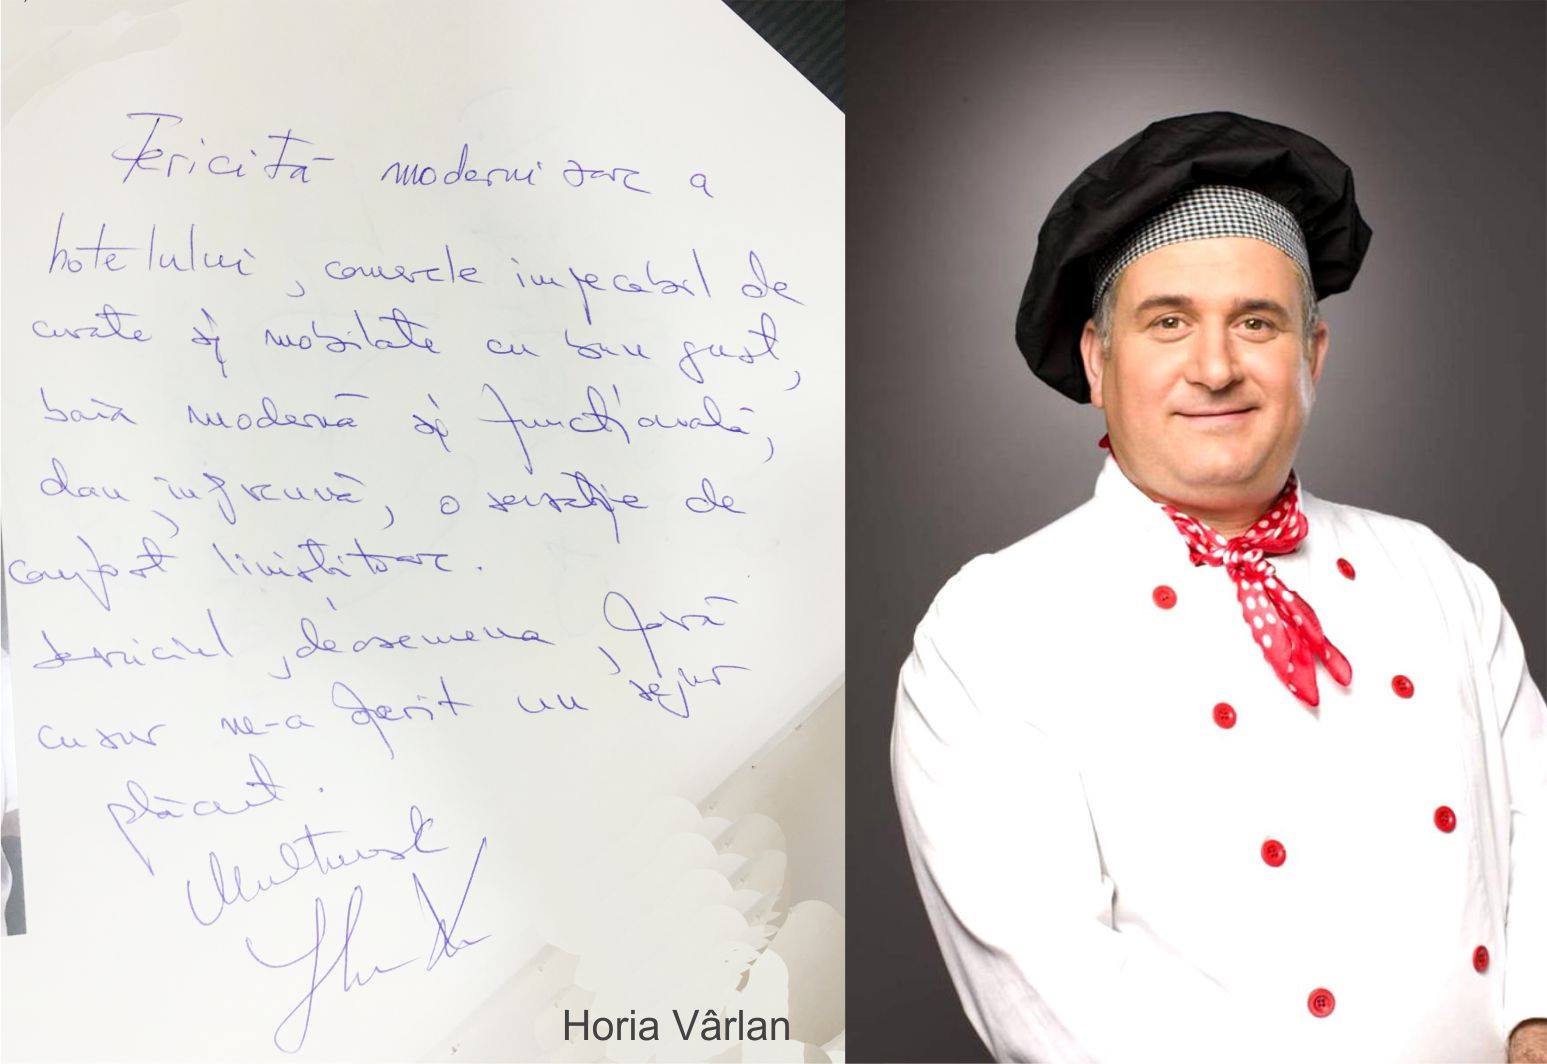 Fericită modernizare a
hotelului, camerele impecabil de
curate și mobilate cu bun gust,
baia modernă și funcțională,
dau, împreună, o senzație de
confort liniștitoare.
Serviciul, deasemenea, fără
cusur ne-a ferit un sejur
plăcut.
Multumesc
Horia Vârlan